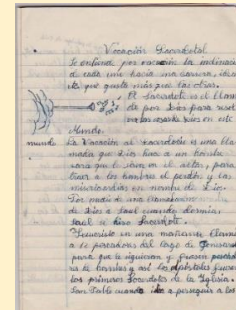 Vocación Sacerdotal
Se entiende por vocación la inclinación
de cada uno hacia una carrera,
que guste más que las otras.
El Sacerdote es el llama
do por Dios para
las cosas de Dios en este
Mundo.
mundo
La Vocación al Sacerdocio es una lla
mada que Dios hace a un hombre
para que le sirva en el altar, para
a los hombres el perdón y las
misericordias en nombre de Dios.
Por medio de una llamada
de Dios a Saul cuando dormía,
Saul se hizo Sacerdote.
Jesucristo en una mañana llama
a 12 pescadores del lago de
para que le siguieran y fuesen pescado
res de hombres y así los Apóstoles fueron
los primeros Sacerdotes de la Iglesia.
San Pablo cuando iba a perseguir a los